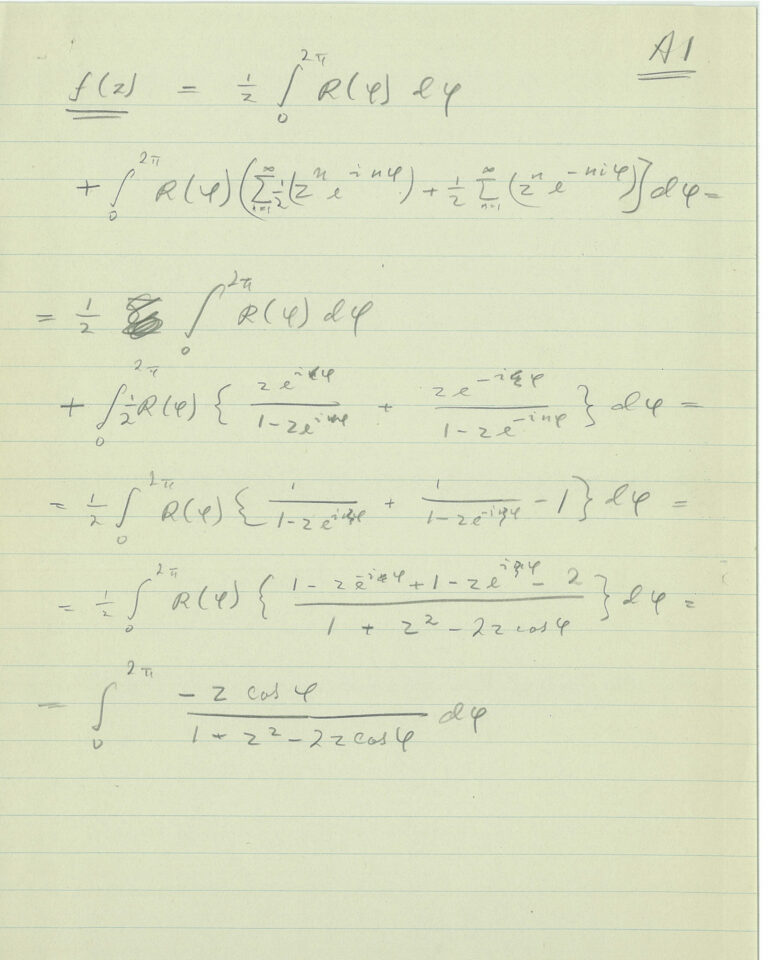 A1
f(z) = 1/2 ∫₀^{2π} R(φ) dφ
+ ∫₀^{2π} R(φ) ( ∑_{n=1}^∞ 1/2 (z^n e^{-inφ}) + 1/2 ∑_{n=1}^∞ (z^n e^{-niφ}) ] dφ =
= 1/2 ∫₀^{2π} R(φ) dφ
+ ∫₀^{2π} 1/2 R(φ) { z e^{iφ} / (1 - z e^{iφ}) + z e^{-iφ} / (1 - z e^{-inφ}) } dφ =
= 1/2 ∫₀^{2π} R(φ) { 1 / (1 - z e^{iφ}) + 1 / (1 - z e^{-iφ}) - 1 } dφ =
= 1/2 ∫₀^{2π} R(φ) { (1 - z e^{-iφ} + 1 - z e^{iφ} - 2) / (1 + z² - 2z cos φ) } dφ =
= ∫₀^{2π} (- z cos φ) / (1 + z² - 2z cos φ) dφ